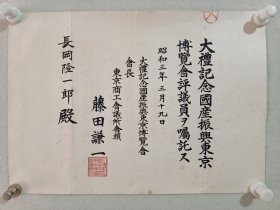 大禮記念國産振興東京
博覽會評議員ヲ囑託ス
昭和三年三月十九日
大禮記念國産振興東京博覽會
會長
東京商工會議所會頭
藤田謙一
長岡隆一郎殿